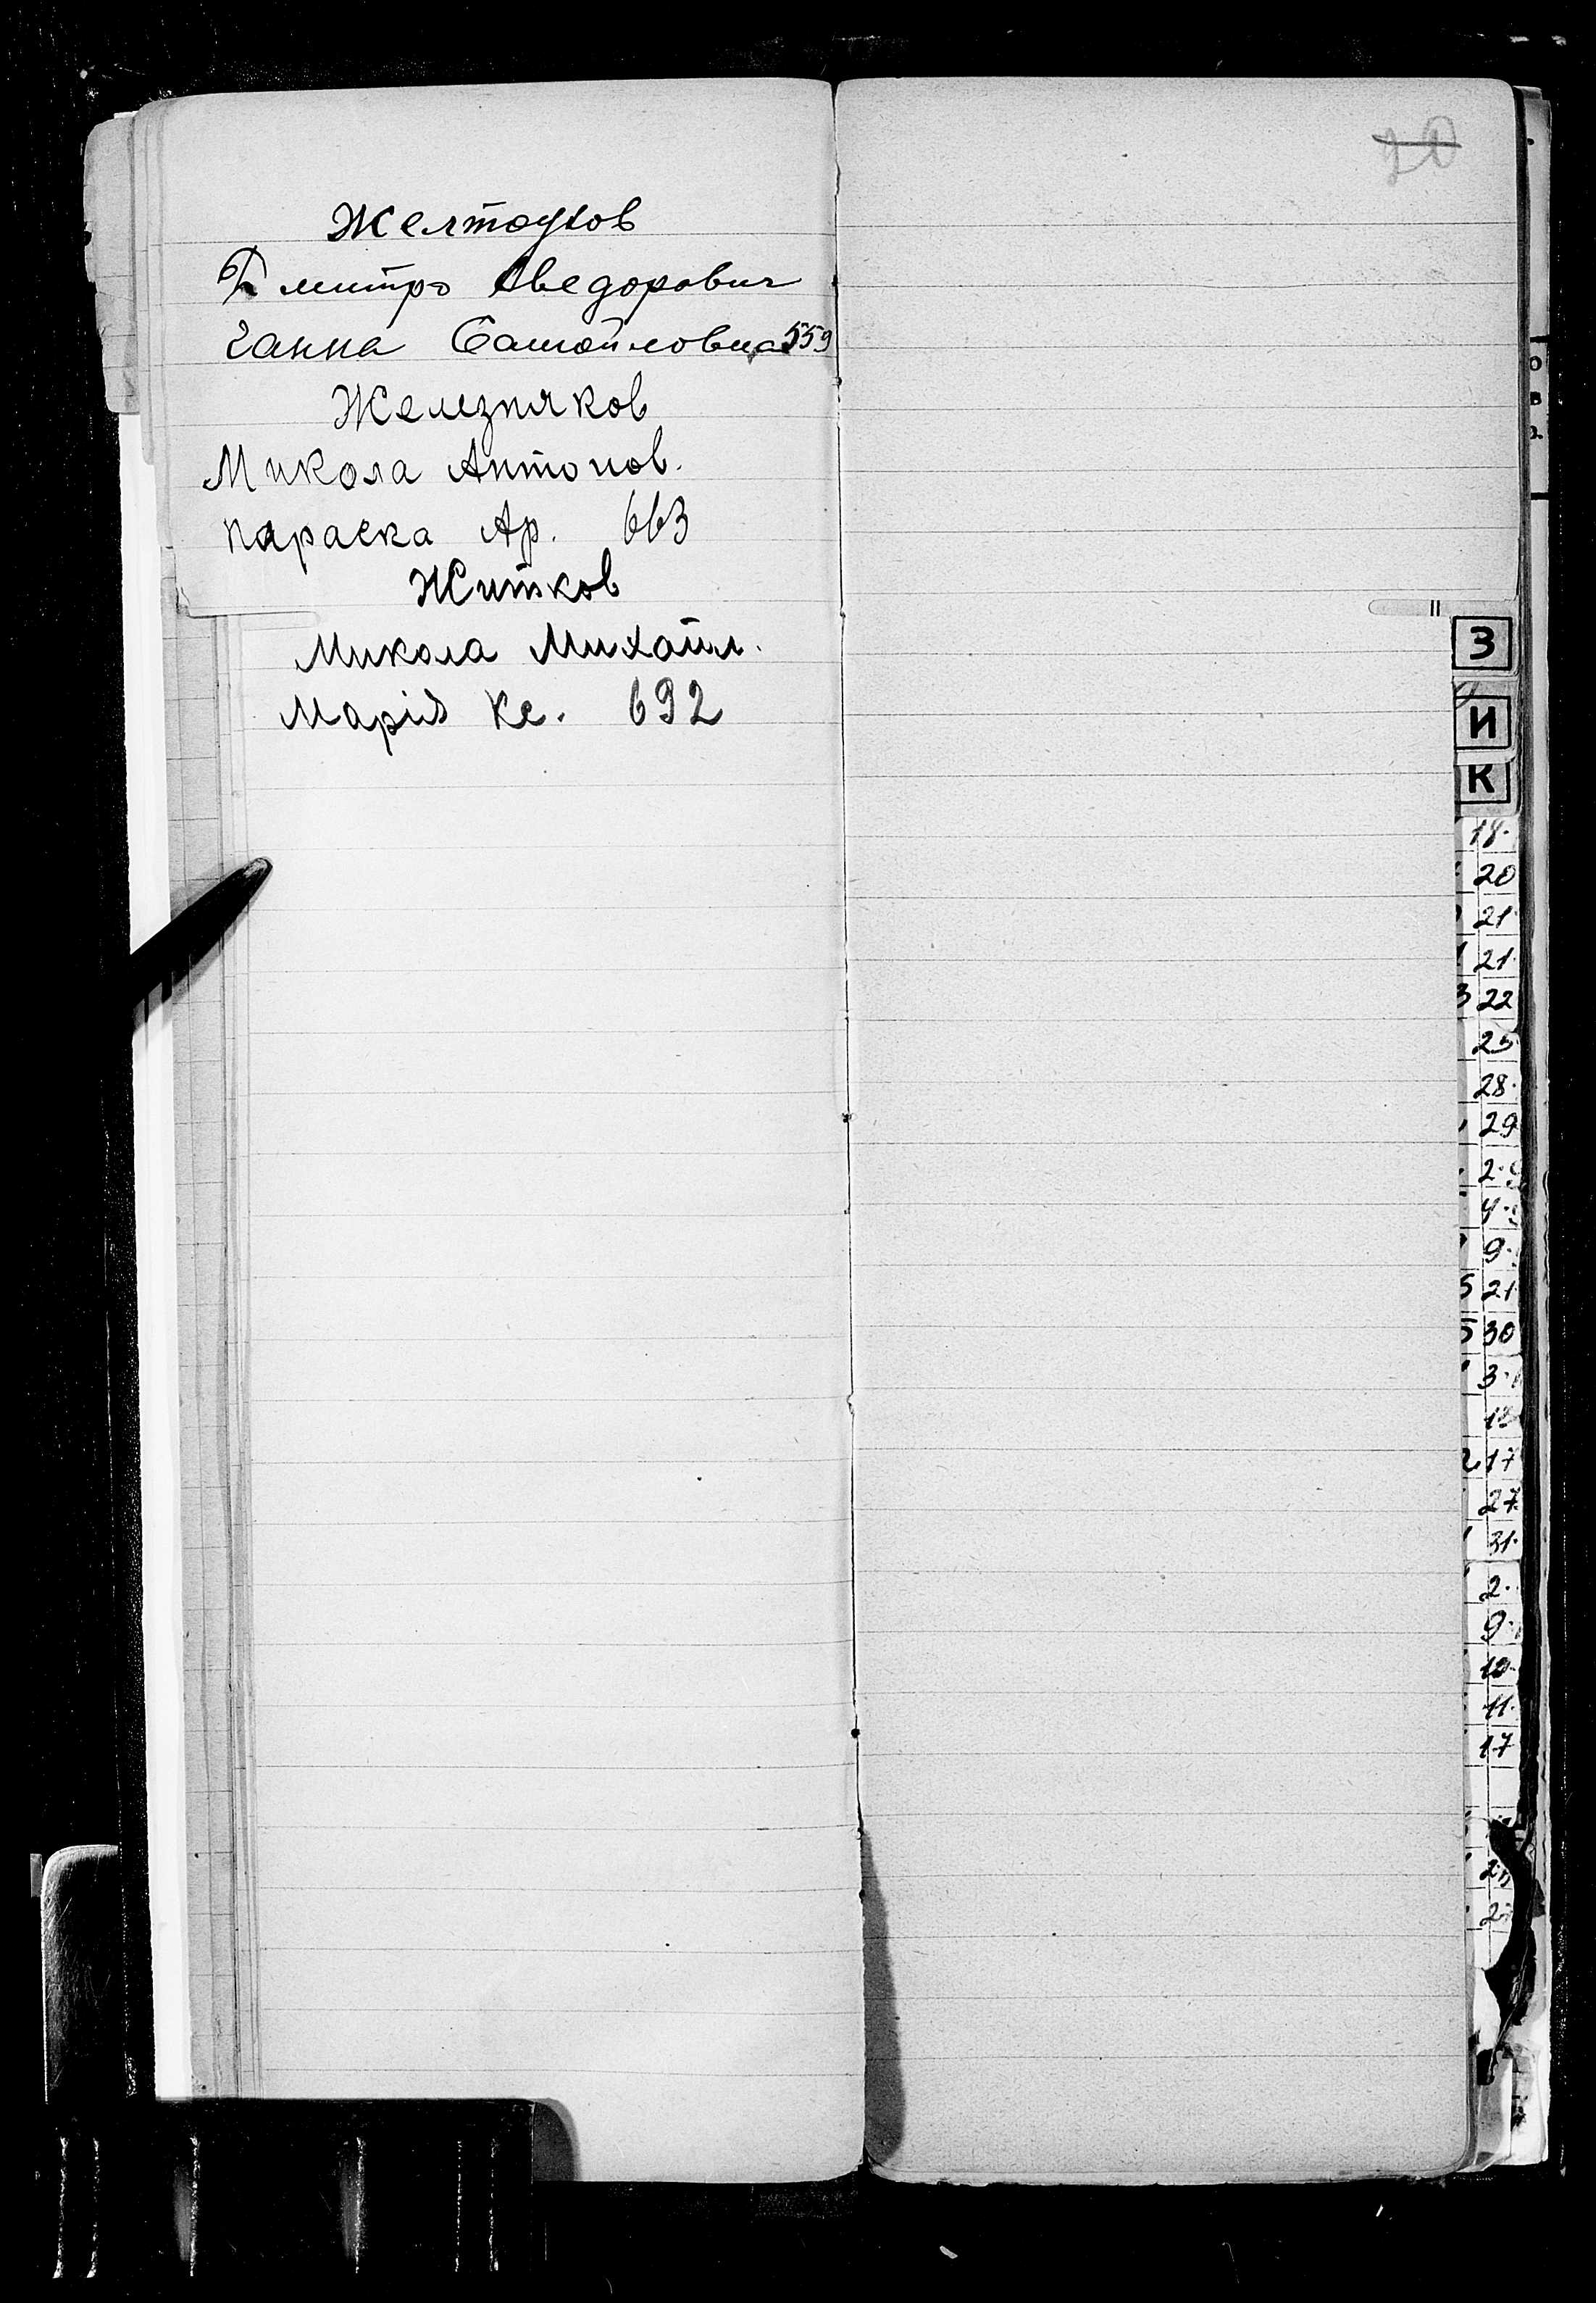 Желтоухов
Дмитро Хведорович
Ганна Самойловна 559
Железняков
Микола Антонов.
Параска Ар. 663
Житков
Микола Михайл.
Марія Ке. 692
20
З
И
К
18.
20
21
21.
22
25
28.
29
2.
4.
9.
5 21
5 30
3.
17
27
31.
2.
9.
10.
11.
17